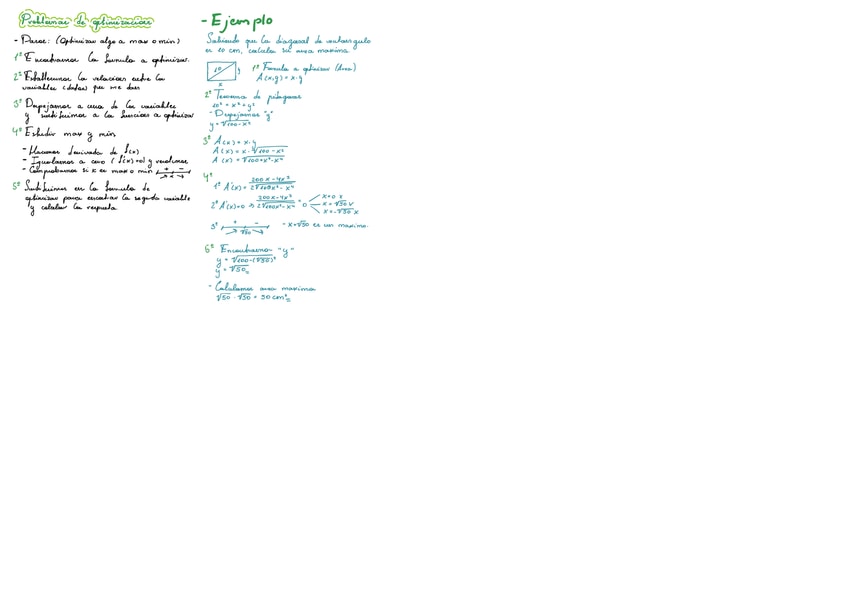 Problemas de optimizacion
- Pasos: (Optimizar algo a max o min)
1º Encontramos la formula a optimizar.
2º Establecemos la relacion entre las
variables (datos) que me dan
3º Despejamos a una de las variables
y sustituimos a la funcion a optimizar
4º Estudiar max y min
- Hacemos derivada de f(x)
- Igualamos a cero (f'(x)=0) y resolvemos
- Comprobamos si x es max o min + -
5º Sustituimos en la formula de
optimizar para encontrar la segunda variable
y calcular la respuesta
- Ejemplo
Sabiendo que la diagonal de un rectangulo
es 10 cm, calcula su area maxima
10 y
x
1º Formula a optimizar (Area)
A(x,y) = x·y
2º Teorema de pitagoras
10² = x² + y²
- Despejamos "y"
y = √100-x²
3º A(x) = x·y
A(x) = x·√100-x²
A(x) = √100x²-x⁴
4º
1º A'(x) = 200x-4x³ / 2√100x²-x⁴
2º A'(x)=0 → 200x-4x³ / 2√100x²-x⁴ = 0
x=0 x
x=√50 v
x=-√50 x
3º + - √50 - x=√50 es un maximo.
5º Encontramos "y"
y = √100-(√50)²
y = √50
- Calculamos area maxima
√50 · √50 = 50 cm²